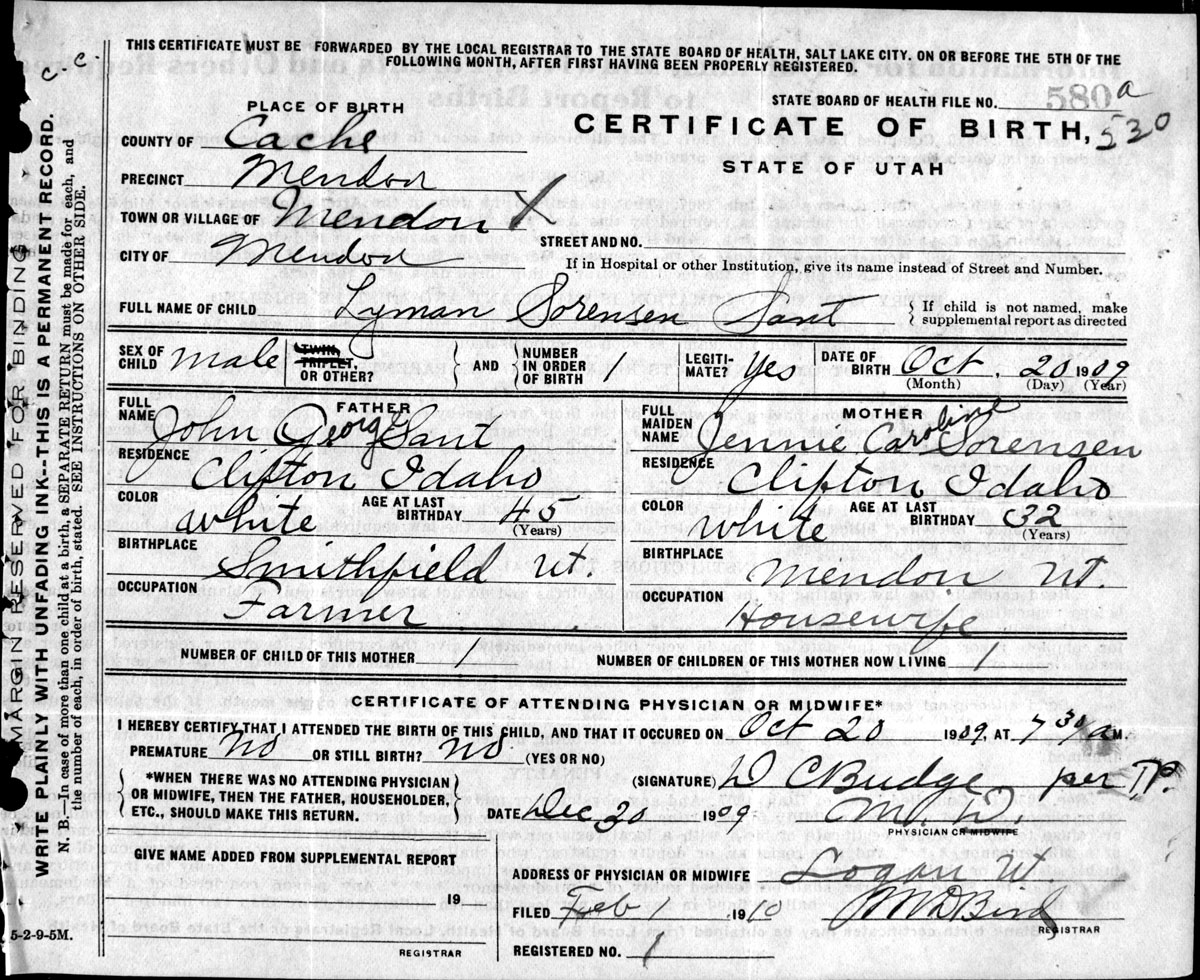 THIS CERTIFICATE MUST BE FORWARDED BY THE LOCAL REGISTRAR TO THE STATE BOARD OF HEALTH, SALT LAKE CITY. ON OR BEFORE THE 5TH OF THE
FOLLOWING MONTH, AFTER FIRST HAVING BEEN PROPERLY REGISTERED.
C. C.
MARGIN RESERVED FOR BINDING
WRITE PLAINLY WITH UNFADING INK--THIS IS A PERMANENT RECORD.
N. B.--In case of more than one child at a birth, a SEPARATE RETURN must be made for each, and
the number of each, in order of birth, stated. SEE INSTRUCTIONS ON OTHER SIDE.
PLACE OF BIRTH
STATE BOARD OF HEALTH FILE NO. 580 a
COUNTY OF Cache
CERTIFICATE OF BIRTH, 530
PRECINCT Mendon
STATE OF UTAH
TOWN OR VILLAGE OF Mendon X
CITY OF Mendon
STREET AND NO.
If in Hospital or other Institution, give its name instead of Street and Number.
FULL NAME OF CHILD Lyman Sorensen Sant { If child is not named, make
supplemental report as directed
SEX OF CHILD male TWIN, TRIPLET, OR OTHER? } AND { NUMBER IN ORDER OF BIRTH 1 LEGITI-MATE? Yes DATE OF BIRTH Oct. 20 1909
(Month) (Day) (Year)
FATHER
FULL NAME John Georg Sant
RESIDENCE Clifton Idaho
COLOR White AGE AT LAST BIRTHDAY 45 (Years)
BIRTHPLACE Smithfield Ut.
OCCUPATION Farmer
MOTHER
FULL MAIDEN NAME Jennie Caroline Sorensen
RESIDENCE Clifton Idaho
COLOR White AGE AT LAST BIRTHDAY 32 (Years)
BIRTHPLACE Mendon Ut
OCCUPATION Housewife
NUMBER OF CHILD OF THIS MOTHER 1 NUMBER OF CHILDREN OF THIS MOTHER NOW LIVING 1
CERTIFICATE OF ATTENDING PHYSICIAN OR MIDWIFE*
I HEREBY CERTIFY THAT I ATTENDED THE BIRTH OF THIS CHILD, AND THAT IT OCCURED ON Oct 20 1909, AT 7 30 a M.
PREMATURE No OR STILL BIRTH? No (YES OR NO)
{ *WHEN THERE WAS NO ATTENDING PHYSICIAN
OR MIDWIFE, THEN THE FATHER, HOUSEHOLDER,
ETC., SHOULD MAKE THIS RETURN. }
(SIGNATURE) D C Budge per
DATE Dec 30 1909 M. D.
PHYSICIAN OR MIDWIFE
GIVE NAME ADDED FROM SUPPLEMENTAL REPORT
19
REGISTRAR
5-2-9-5M.
ADDRESS OF PHYSICIAN OR MIDWIFE Logan Ut
FILED Feb 1 1910 M D Bird
REGISTRAR
REGISTERED NO. 1